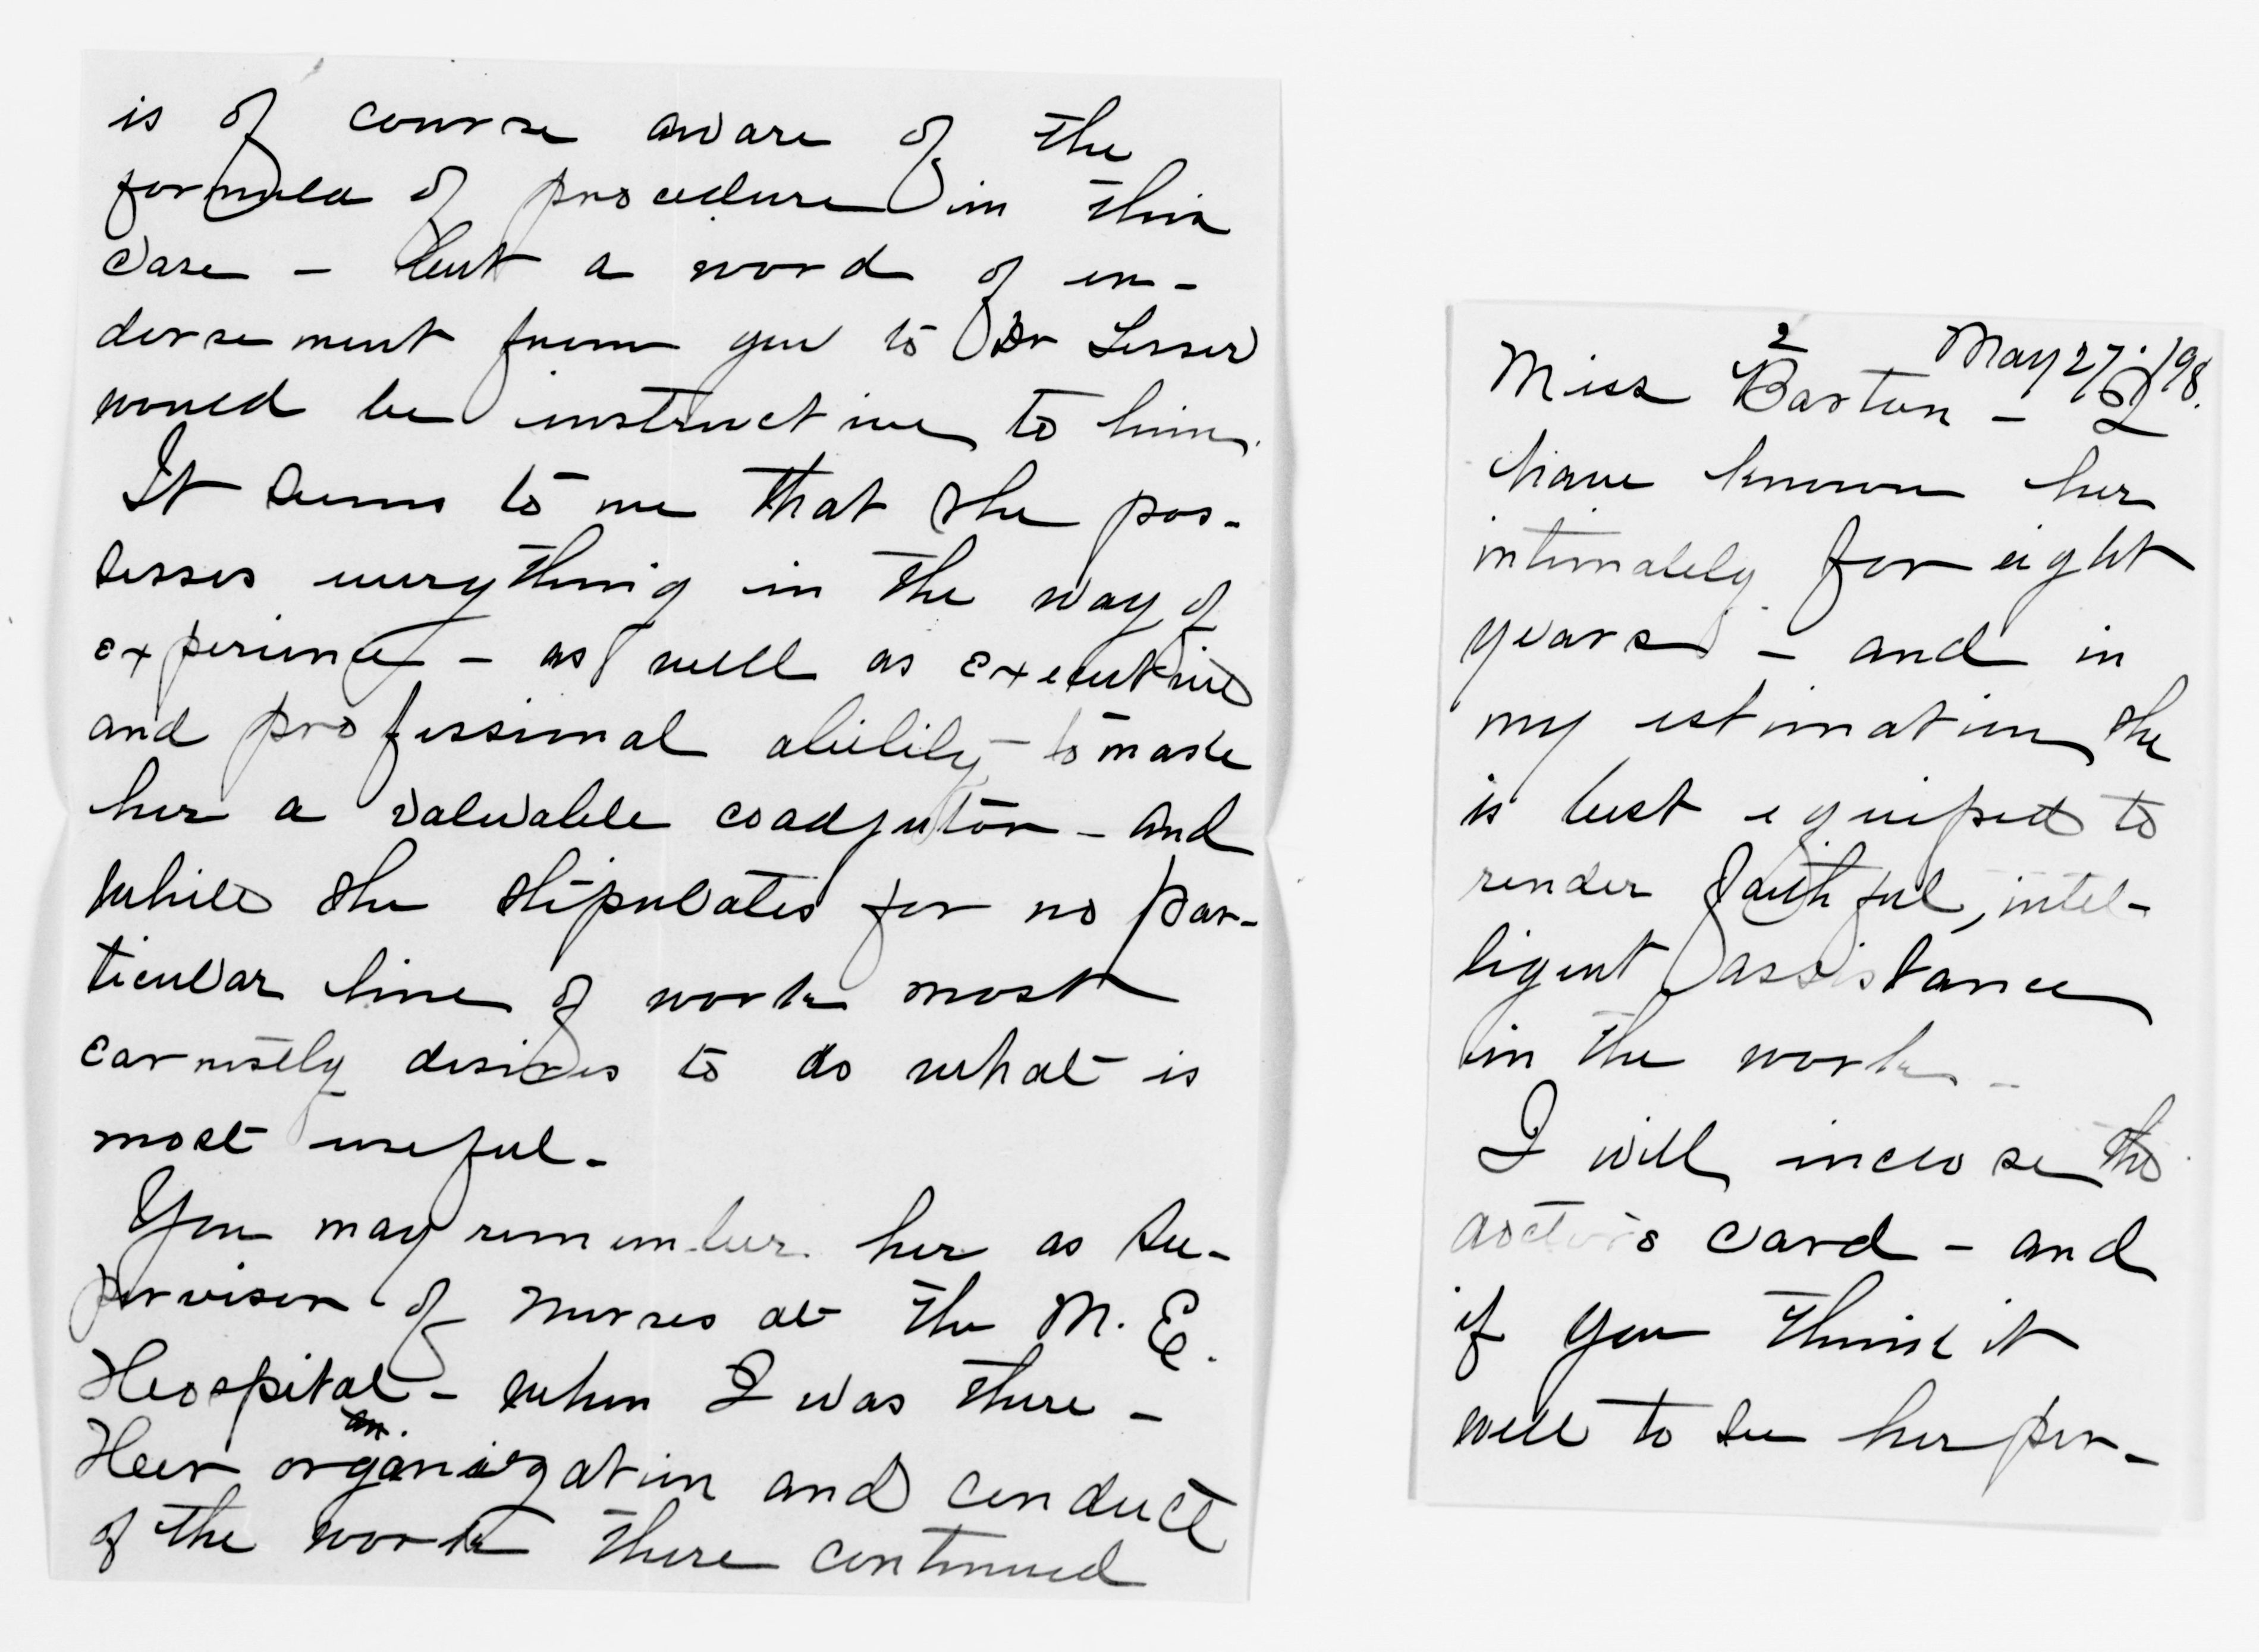 is of course aware of the
formula of procedure in this
case - but a word of en-
dorsement from you to Dr Lesser
would be instructive to him.
It seems to me that she pos-
sesses everything in the way of
experience - as well as executive
and professional ability - to make
her a valuable coadjutor - and
while she stipulates for no par-
ticular line of work most
earnestly desires to do what is
most useful -
You may remember her as su-
pervisor of nurses at the M. E.
Hospital - when I was there -
Her organization and conduct
of the work there continued
2
May 27/98.
Miss Barton - I
have known her
intimately for eight
years - and in
my estimation she
is best equiped to
render faithful, intel-
ligent assistance
in the work -
I will inclose the
doctor's card - and
if you think it
well to see her per-